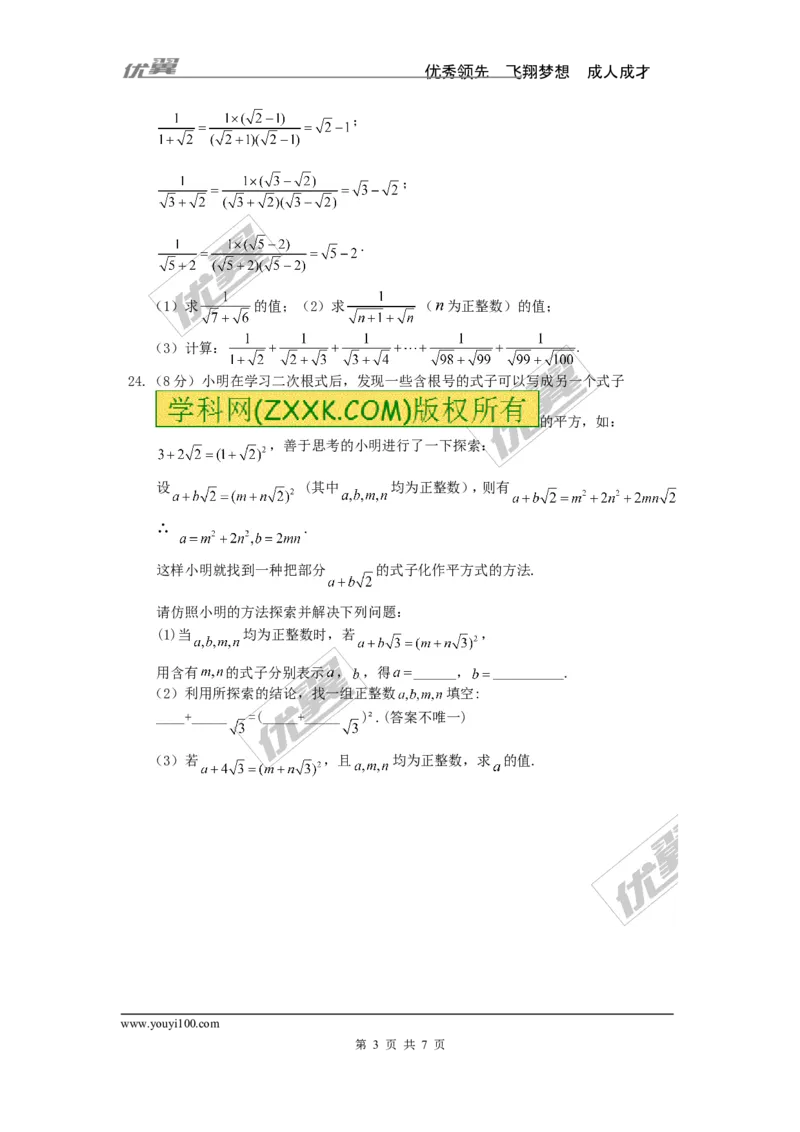 优翼 优秀领先 飞翔梦想 成人成才
1/(1+√2)=1×(√2-1)/((√2+1)(√2-1))=√2-1;
1/(√3+√2)=1×(√3-√2)/((√3+√2)(√3-√2))=√3-√2;
1/(√5+2)=1×(√5-2)/((√5+2)(√5-2))=√5-2.
(1)求 1/(√7+√6) 的值;(2)求 1/(√(n+1)+√n) (n为正整数)的值;
(3)计算:1/(1+√2)+1/(√2+√3)+1/(√3+√4)+…+1/(√98+√99)+1/(√99+√100).
24.(8分)小明在学习二次根式后,发现一些含根号的式子可以写成另一个式子
学科网(ZXXK.COM)版权所有 的平方,如:
3+2√2=(1+√2)²,善于思考的小明进行了一下探索:
设 a+b√2=(m+n√2)² (其中 a,b,m,n 均为正整数),则有 a+b√2=m²+2n²+2mn√2
∴ a=m²+2n²,b=2mn.
这样小明就找到一种把部分 a+b√2 的式子化作平方式的方法.
请仿照小明的方法探索并解决下列问题:
(1)当 a,b,m,n 均为正整数时,若 a+b√3=(m+n√3)²,
用含有m,n的式子分别表示a,b,得a=______,b=__________.
(2)利用所探索的结论,找一组正整数a,b,m,n填空:
____+_____√3=(_____+_____√3)².(答案不唯一)
(3)若 a+4√3=(m+n√3)²,且 a,m,n 均为正整数,求 a 的值.
优翼
优翼
优翼
优翼
www.youyi100.com
第 3 页 共 7 页